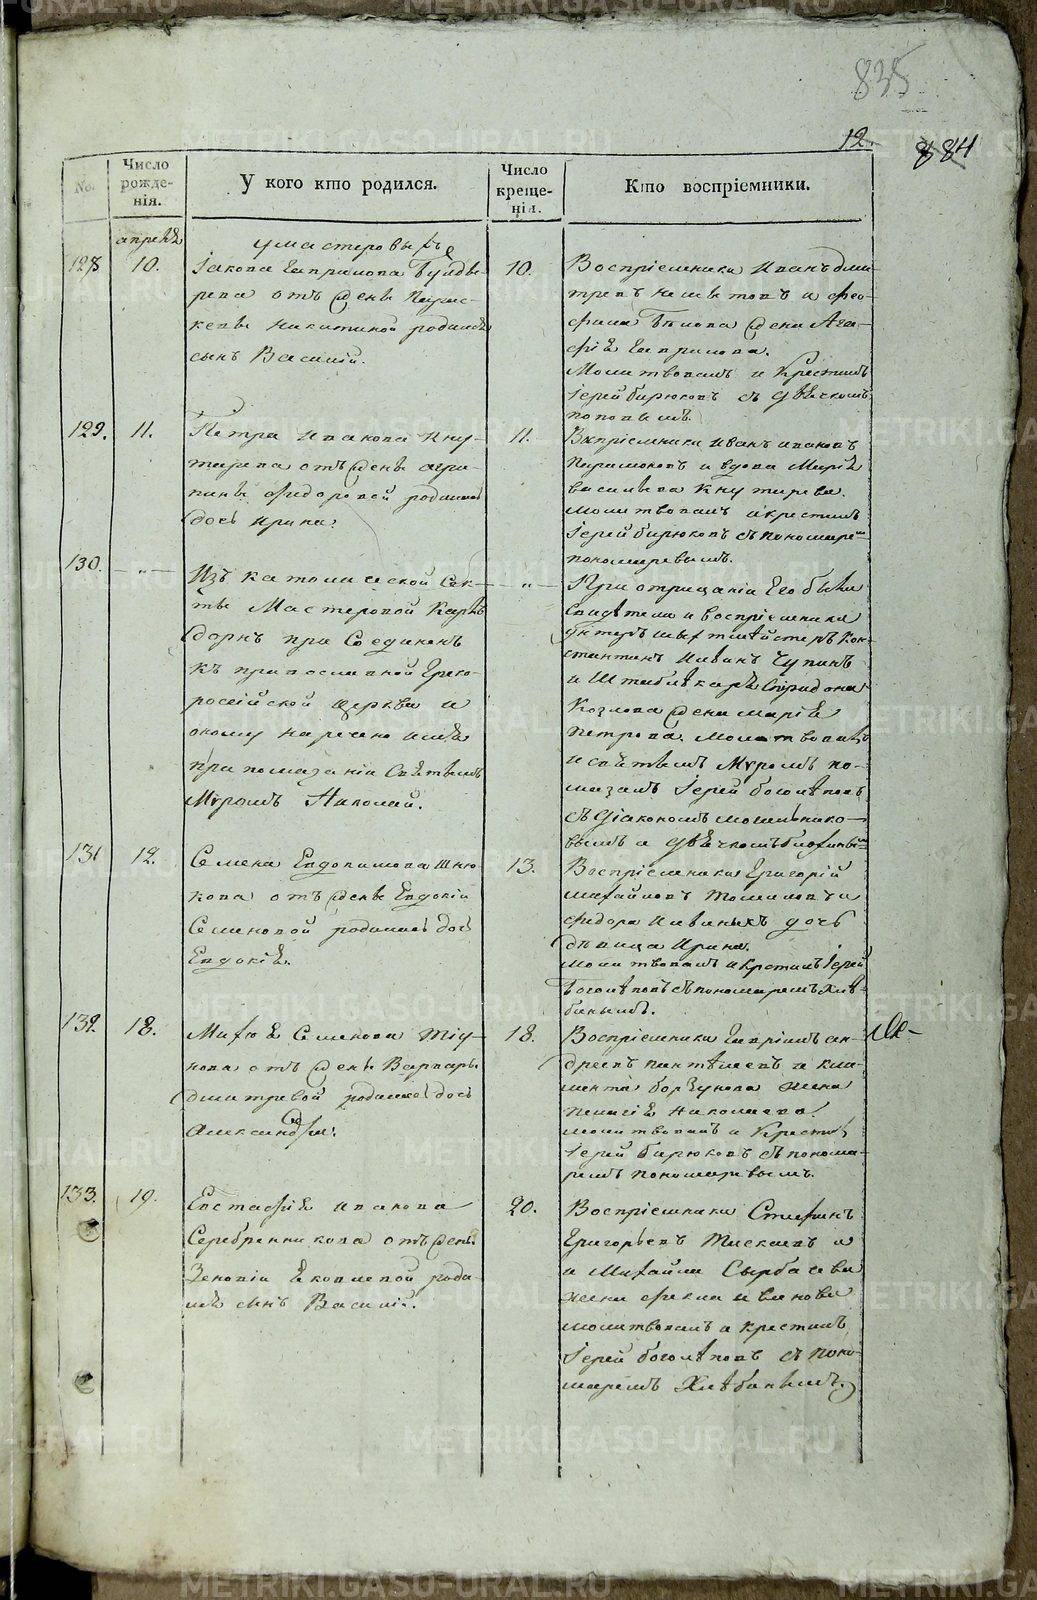 835
12.
884
No.
Число рожде-нія.
У кого кто родился.
Число креще-нія.
Кто воспріемники.
апреля
у мастеровыхъ
128
10.
Іакова Гаврилова
рева отъ жены Парас-
кевы Никитиной родился
сынъ Василій.
10.
Воспріемники Иванъ Дми-
тревъ и Фео-
фила Белова жена Ага-
фія Гаврилова.
Молитвовалъ и Крестилъ
Іерей Бирюковъ съ дьячкомъ
Поповымъ.
129.
11.
Петра Ивакова Кну-
тарева отъ жены Агри-
пины Федоровой родилась
дочь Ирина.
11.
Воспріемники Иванъ Иваковъ
Парамоновъ и вдова Марія
Васильева Кнутарева.
молитвовалъ и крестилъ
Іерей Бирюковъ съ пономаре
Пономаревымъ.
130.
— „ —
Изъ католической Сек-
ты Мастеровой Карлъ
Дорнъ при Соединенъ
къ православной Греко-
россійской церкви и
оному наречено имя
при помазаніи Святымъ
Мѵромъ Николай.
— „ —
При отрицаніи Его были
Свидетели и воспріемники
Кон-
стантинъ Ивановъ Чупинъ
и Спиридона
Козлова жена Марія
Петрова. Молитвовалъ
и святымъ Мѵромъ по-
мазалъ Іерей Боголеповъ
съ діакономъ
вымъ и дьячкомъ
131
12.
Семена Евдокимова Шню-
кова отъ жены Евдокіи
Семеновой родилась дочь
Евдокія.
13.
Воспріемники Григорій
Михайловъ Томиловъ и
Федора Ивиныхъ дочь
девица Ирина.
молитвовалъ и крестилъ Іерей
Боголеповъ съ пономаремъ Хле-
баннымъ.
132.
18.
Матфея Семенова Тіу-
нова отъ жены Варвары
Дмитревой родилась дочь
Александра.
18.
Воспріемники Гавріилъ Ан-
дреевъ Пантелеевъ и Кли-
мента Борзунова жена
Пелагія Николаева.
молитвовалъ и Крестилъ
Іерей Бирюковъ съ понома-
ремъ Пономаревымъ.
133.
19.
Евстафія Ивакова
Серебренникова отъ жены
Зеновіи Яковлевой роди-
лся сынъ Василій.
20.
Воспріемники Стефанъ
Григорьевъ и
и Михайла Сырбачева
жена Фекла Иванова
молитвовалъ и крестилъ
Іерей Боголеповъ съ поно-
маремъ Хлебаннымъ.
METRIKI.GASO-URAL.RU